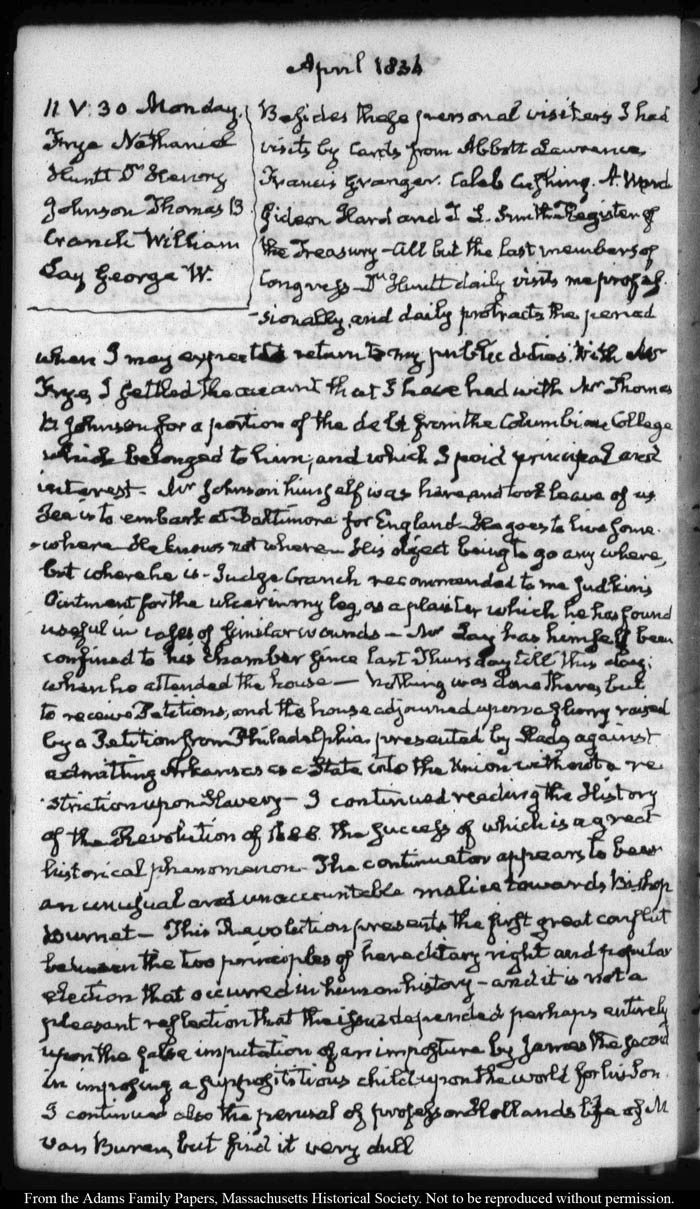 April 1836
11 V:30 Monday.
Frye Nathaniel
Huntt Dr Henry
Johnson Thomas B
Cranch William
Lay George W.
Besides these personal visiters I had
visits by Cards from Abbott Lawrence
Francis Granger. Caleb Cushing. A. Ward
Gideon Hard and T. L. Smith Register of
the Treasury—all but the last members of
Congress—Dr Huntt daily visits me profes-
-sionally, and daily protracts the period
when I may expect to return to my public duties. With Mr
Frye, I settled the account that I have had with Mr Thomas
B Johnson for a portion of the debt from the Columbian College
which belonged to him; and which I paid principal and
interest—Mr Johnson himself was here and took leave of us
He is to embark at Baltimore for England—He goes to live some-
-where He knows not where—His object being to go any where,
but where he is—Judge Cranch recommended to me Judkin's
Ointment for the ulcer in my leg, as a plaister which he has found
useful in cases of similar wounds—Mr Lay has himself been
confined to his chamber since last Thursday till this day;
when he attended the house—Nothing was done there, but
to receive Petitions, and the house adjourned upon a flurry raised
by a Petition from Philadelphia presented by Slade against
admitting Arkansas as a State into the Union without a re
-striction upon Slavery—I continued reading the History
of the Revolution of 1688. the success of which is a great
historical phenomenon—The continuator appears to bear
an unusual and unaccountable malice towards Bishop
Burnet—This Revolution presents the first great conflict
between the two principles of hereditary right and popular
election that occurred in human history—and it is not a
pleasant reflection that the issue depended perhaps entirely
upon the false imputation of an imposture by James the Second
in imposing a supposititious child upon the world for his Son.
I continued also the perusal of professor Holland's life of M
Van Buren, but find it very dull
From the Adams Family Papers, Massachusetts Historical Society. Not to be reproduced without permission.